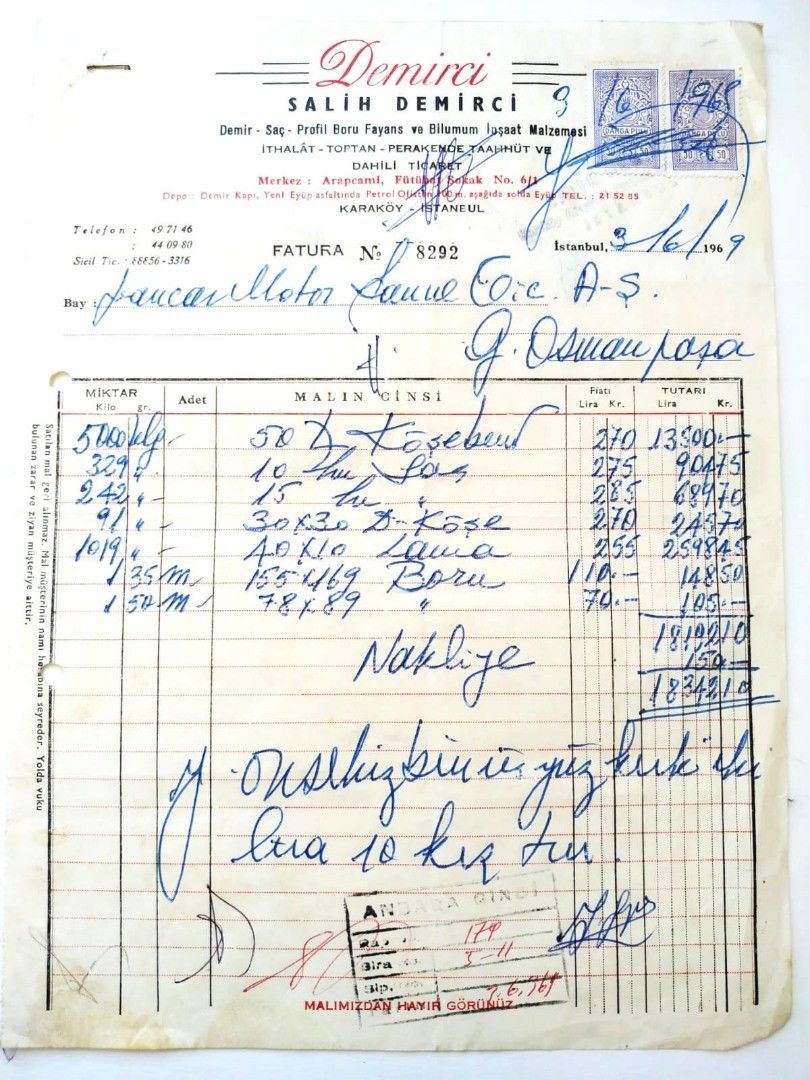 Demirci
SALİH DEMİRCİ
Demir - Saç - Profil Boru Fayans ve Bilumum İnşaat Malzemesi
İTHALÂT - TOPTAN - PERAKENDE TAAHHÜT VE
DAHİLİ TİCARET
Merkez : Arapcami, Fütühat Sokak No. 6/1
Depo : Demir Kapı, Yeni Eyüp asfaltında Petrol Ofisten 100 m. aşağıda solda Eyüp TEL. : 21 52 85
KARAKÖY - İSTANBUL
3 / 6 / 1969
DAMGA PULU DAMGA PULU
50 50 50
Telefon : 49 71 46
: 44 09 80
Sicil Tic. : 88856-3316
FATURA No 8292
İstanbul, 3/6/1969
Bay : Motor A-Ş.
G. Osmanpaşa
MİKTAR Adet MALIN CİNSİ Fiatı TUTARI
Kilo gr. Lira Kr. Lira Kr.
5000 klg - 50 D Köşebent 270 13500.-
329 " - 10 lu Saç 275 904 75
242 " - 15 lu " 285 689 70
91 " - 30x30 D-Köşe 270 245 70
1019 " - 40x10 Lama 255 2598 45
1 35 m - 155x169 Boru 110.- 148 50
1 50 m - 78x89 " 70.- 105.-
18192 10
Nakliye 150.-
18342 10
Y onsekizbin üçyüz kırk iki
lira 10 krş tur.
Satılan mal geri alınmaz. Mal müşterinin nam ve hesabına seyreder. Yolda vuku
bulunan zarar ve ziyan müşteriye aittir.
ANBARA GİRDİ
179
Sıra 5-11
Sip.
MALIMIZDAN HAYIR GÖRÜNÜZ.